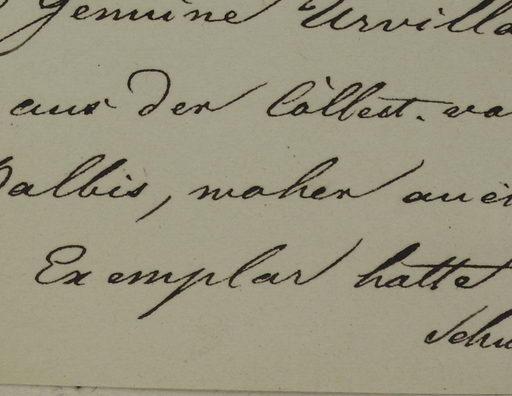 Genuine Urvilla
aus der Collect. va
Balbis, woher auch
Exemplar hatte
Schu